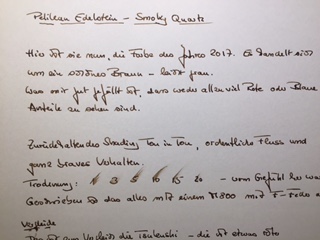 Pelikan Edelstein - Smoky Quartz
Hier ist sie nun, die Farbe des Jahres 2017. Es handelt sich
um ein schönes Braun - leicht grau.
Was mir gut gefällt ist, dass weder allzu viel Rote oder Blaue
Anteile zu sehen sind.
Zurückhaltendes Shading Ton in Ton, ordentlicher Fluss und
ganz braves Verhalten.
Trocknung: 1 3 5 10 15 20 - vom Gefühl her
Geschrieben ist das alles mit einem M800 mit
Vergleiche
ist zum Vergleich die - die ist etwas